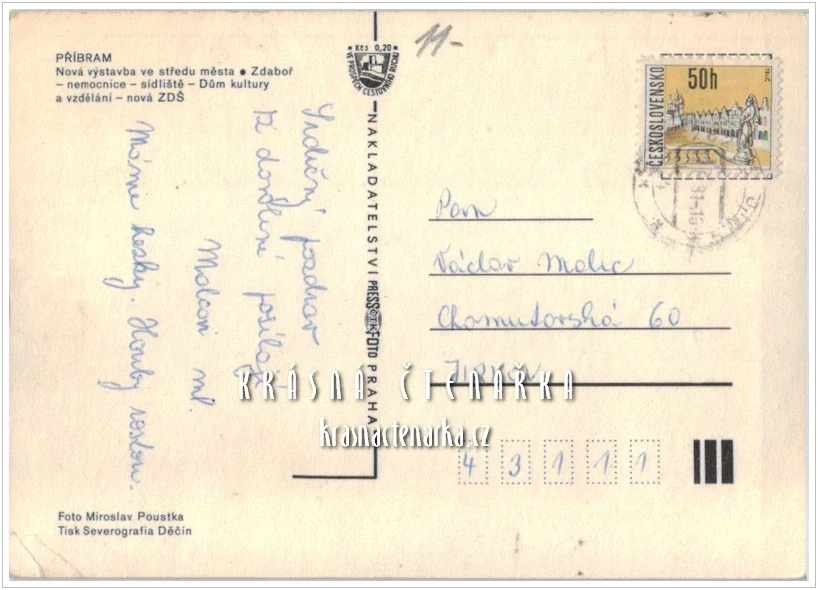 PŘÍBRAM
Nová výstavba ve středu města • Zdaboř
– nemocnice – sídliště – Dům kultury
a vzdělání – nová ZDŠ
Srdečný pozdrav
z dovolené posílají
Molcovi ml.
Máme hezky. Houby rostou.
Foto Miroslav Poustka
Tisk Severografia Děčín
Kčs 0,20
VE PROSPĚCH CESTOVNÍHO RUCHU
NAKLADATELSTVÍ PRESSFOTO PRAHA
ČTK
11-
ČESKOSLOVENSKO
50h
TELČ
Pan
Václav Molic
Chomutovská 60
JIRKOV
4 3 1 1 1
KRÁSNÁ ČTENÁŘKA
krasnactenarka.cz